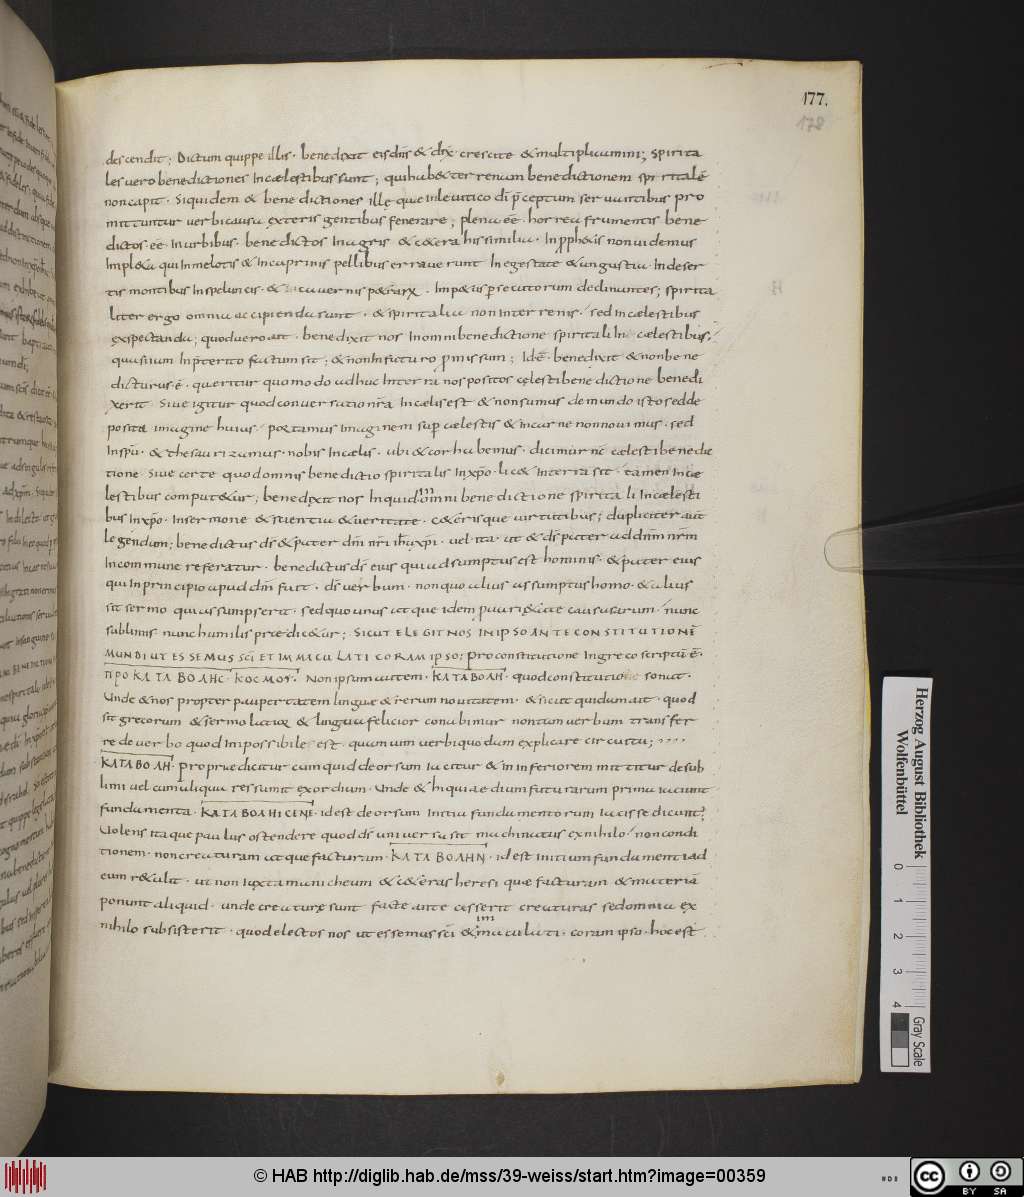 177.
178
descendit; Dictum quippe illis · benedixit eis dn̄s & dix̄ · crescite & multiplicamini; Spirita
les vero benedictiones In cælestibus sunt; qui hab&ter renum benedictionem spiritalē
non capit · Siquidem & benedictiones illę quæ In levitico dī p̄ceptum servantibus pro
mittuntur verbi causa ęxteris gentibus fenerare; plena eē · horrea frumentis bene
dictos · eē In urbibus · benedictos In agris & c&era his similia · In pph&is non videmus
Impl&a qui In melotis & In caprinis pellibus erraverunt In egestate & angustia · In deser
tis montibus In speluncis · & In cavernis
liter ergo omnia accipienda sunt · & spiritalia non In terrenis · sed In cælestibus
ęxpectanda; quod vero ait · benedixit nos In omni benedictione spiritali In cælestibus ·
quasi Iam In p̄terito factum sit; & non In futuro p̄missum; Idē · benedixit & non bene
dicturus · ē · queritur quomodo adhuc In terra nos positos cęlesti benedictione benedi
xerit · Sive igitur quod conversatio nr̄a In cælis est & non sumus de mundo isto sed de
posita imagine huius · portamus Imaginem sup cælestis & In carne non novimus · sed
In spū · & thesaurizamus · nobis In cælis · ubi & cor habemus · dicimur nc̄ cælesti benedic
tione Sive certe quod omnis benedictio spiritalis In xp̄o · lic& In terra sit · tamen In cæ
lestibus comput&ur; benedixit nos Inquid In omni benedictione spiritali In cælesti
bus In xp̄o · In sermone & scientia & veritate · c&ērisque virtutibus; dupliciter aūt
legendum; benedictus ds̄ & pater dn̄i nr̄i ih̄u xp̄i · vel ita · ut & ds̄ pater ad dn̄m nr̄m
In commune referatur · benedictus ds̄ eius qui adsumptus est hominis · & pater eius
qui In principio apud dm̄ fuit · ds̄ verbum · non quo alius assumptus homo · & alius
sit sermo qui assumpserit · sed quo unus atque idem p varietate causarum · nunc
sublimis nunc humilis prædic&ur; SICUT ELEGIT NOS IN IPSO ANTE CONSTITUTIONĒ
MUNDI UT ESSEMUS SC̄I ET IMMACULATI CORAM IPSO; Pro constitutione In greco scriptū ē ·
ΠΡΟ ΚΑΤΑΒΟΛΗC · ΚΟCΜΟΥ · Non ipsum autem · ΚΑΤΑΒΟΛΗ · quod constitutione sonat ·
Unde & nos propter paupertatem linguæ & rerum novitatem · & sicut quidam ait · quod
sit grecorum & sermo latior & lingua felicior conabimur non tam verbum transfer
re de verbo quod Impossibile est · quam vim verbi quodam explicare circuitu;
ΚΑΤΑΒΟΛΗ · Proprie dicitur cum quid deorsum Iacitur & in inferiorem mittitur de sub
limi vel cum aliqua res sumit exordium · Unde & hi qui aedium futurarum prima Iaciunt
fundamenta · ΚΑΤΑΒΟΛΗΙCΕΝΕ · id est deorsum Initia fundamentorum Iacisse dicunt̄;
Volens itaque paulus ostendere quod ds̄ universa sit machinatus ex nihilo / non condi
tionem · non creaturam atque facturam · ΚΑΤΑΒΟΛΗΝ · id est Initium fundamenti ad
eum r&ulit · ut non Iuxta manicheum & c&eras heresi quæ facturam & materiā
ponunt aliquid · unde creaturæ sunt factæ ante cesserit creaturas sed omnia ex
nihilo subsisterit · quod electos nos ut essemus sc̄i & immaculati · coram ipso · hoc est
Herzog August Bibliothek
Wolfenbüttel
0 1 2 3 4
Gray Scale
© HAB http://diglib.hab.de/mss/39-weiss/start.htm?image=00359
cc BY SA